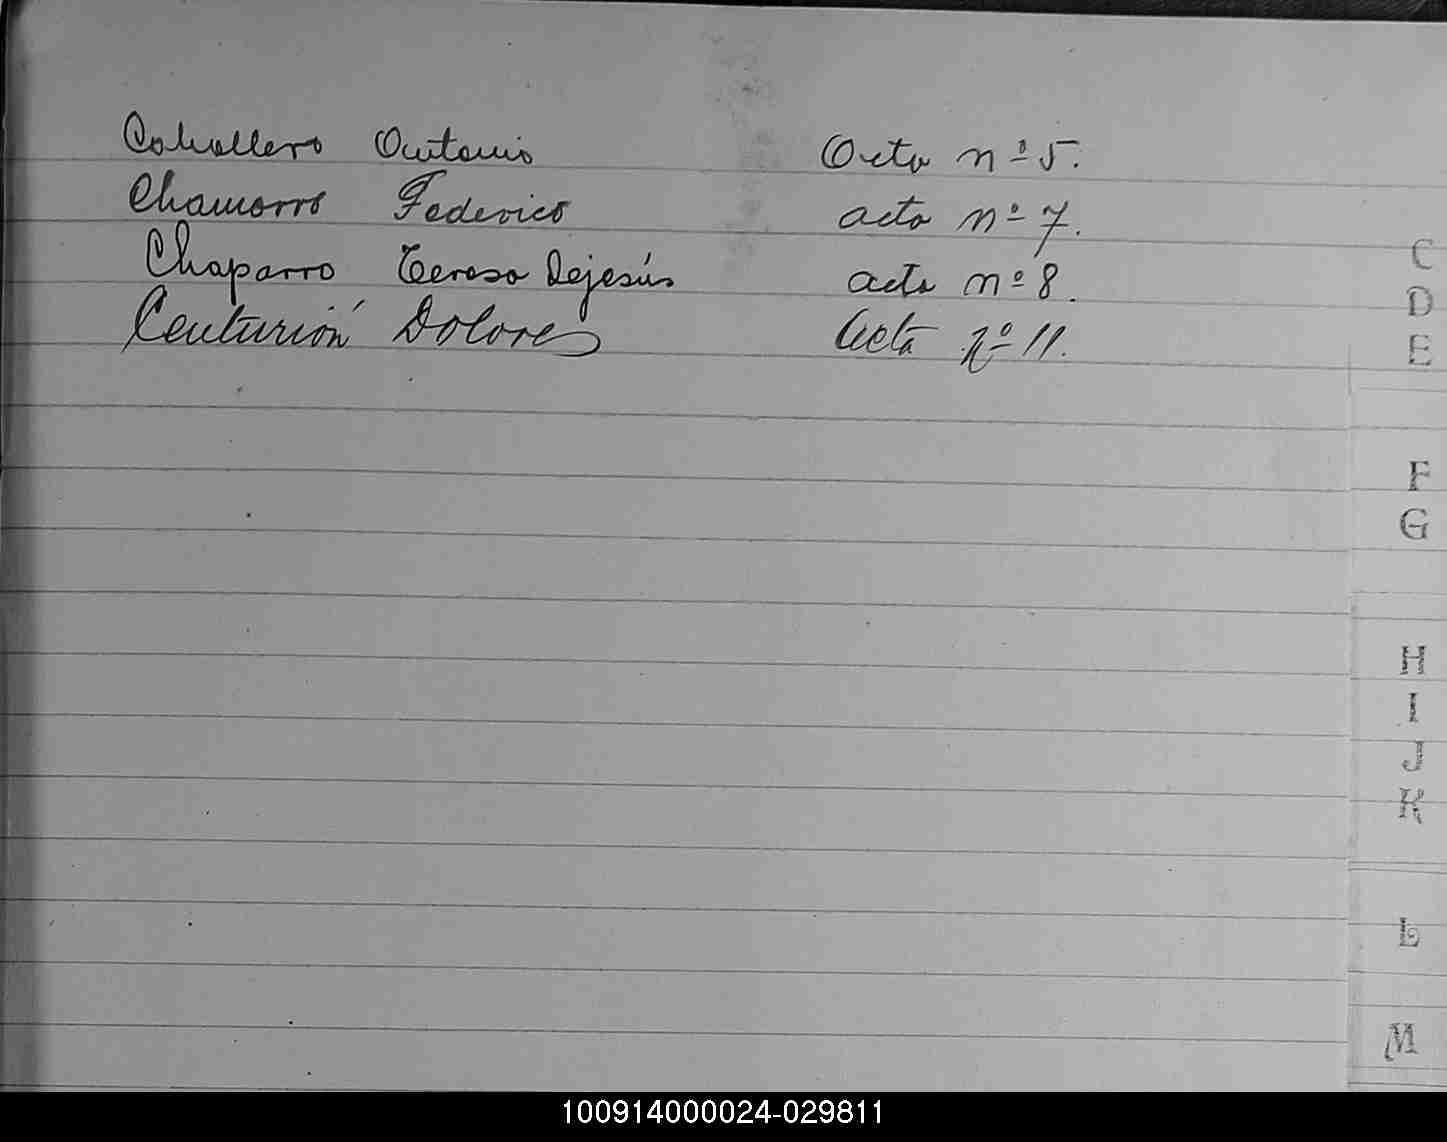 Caballero Antonio Acta nº 5.
Chamorro Federico acta nº 7.
Chaparro Teresa Dejesús acta nº 8.
Centurión Dolores Acta Nº 11.
C
D
E
F
G
H
I
J
K
L
M
100914000024-029811